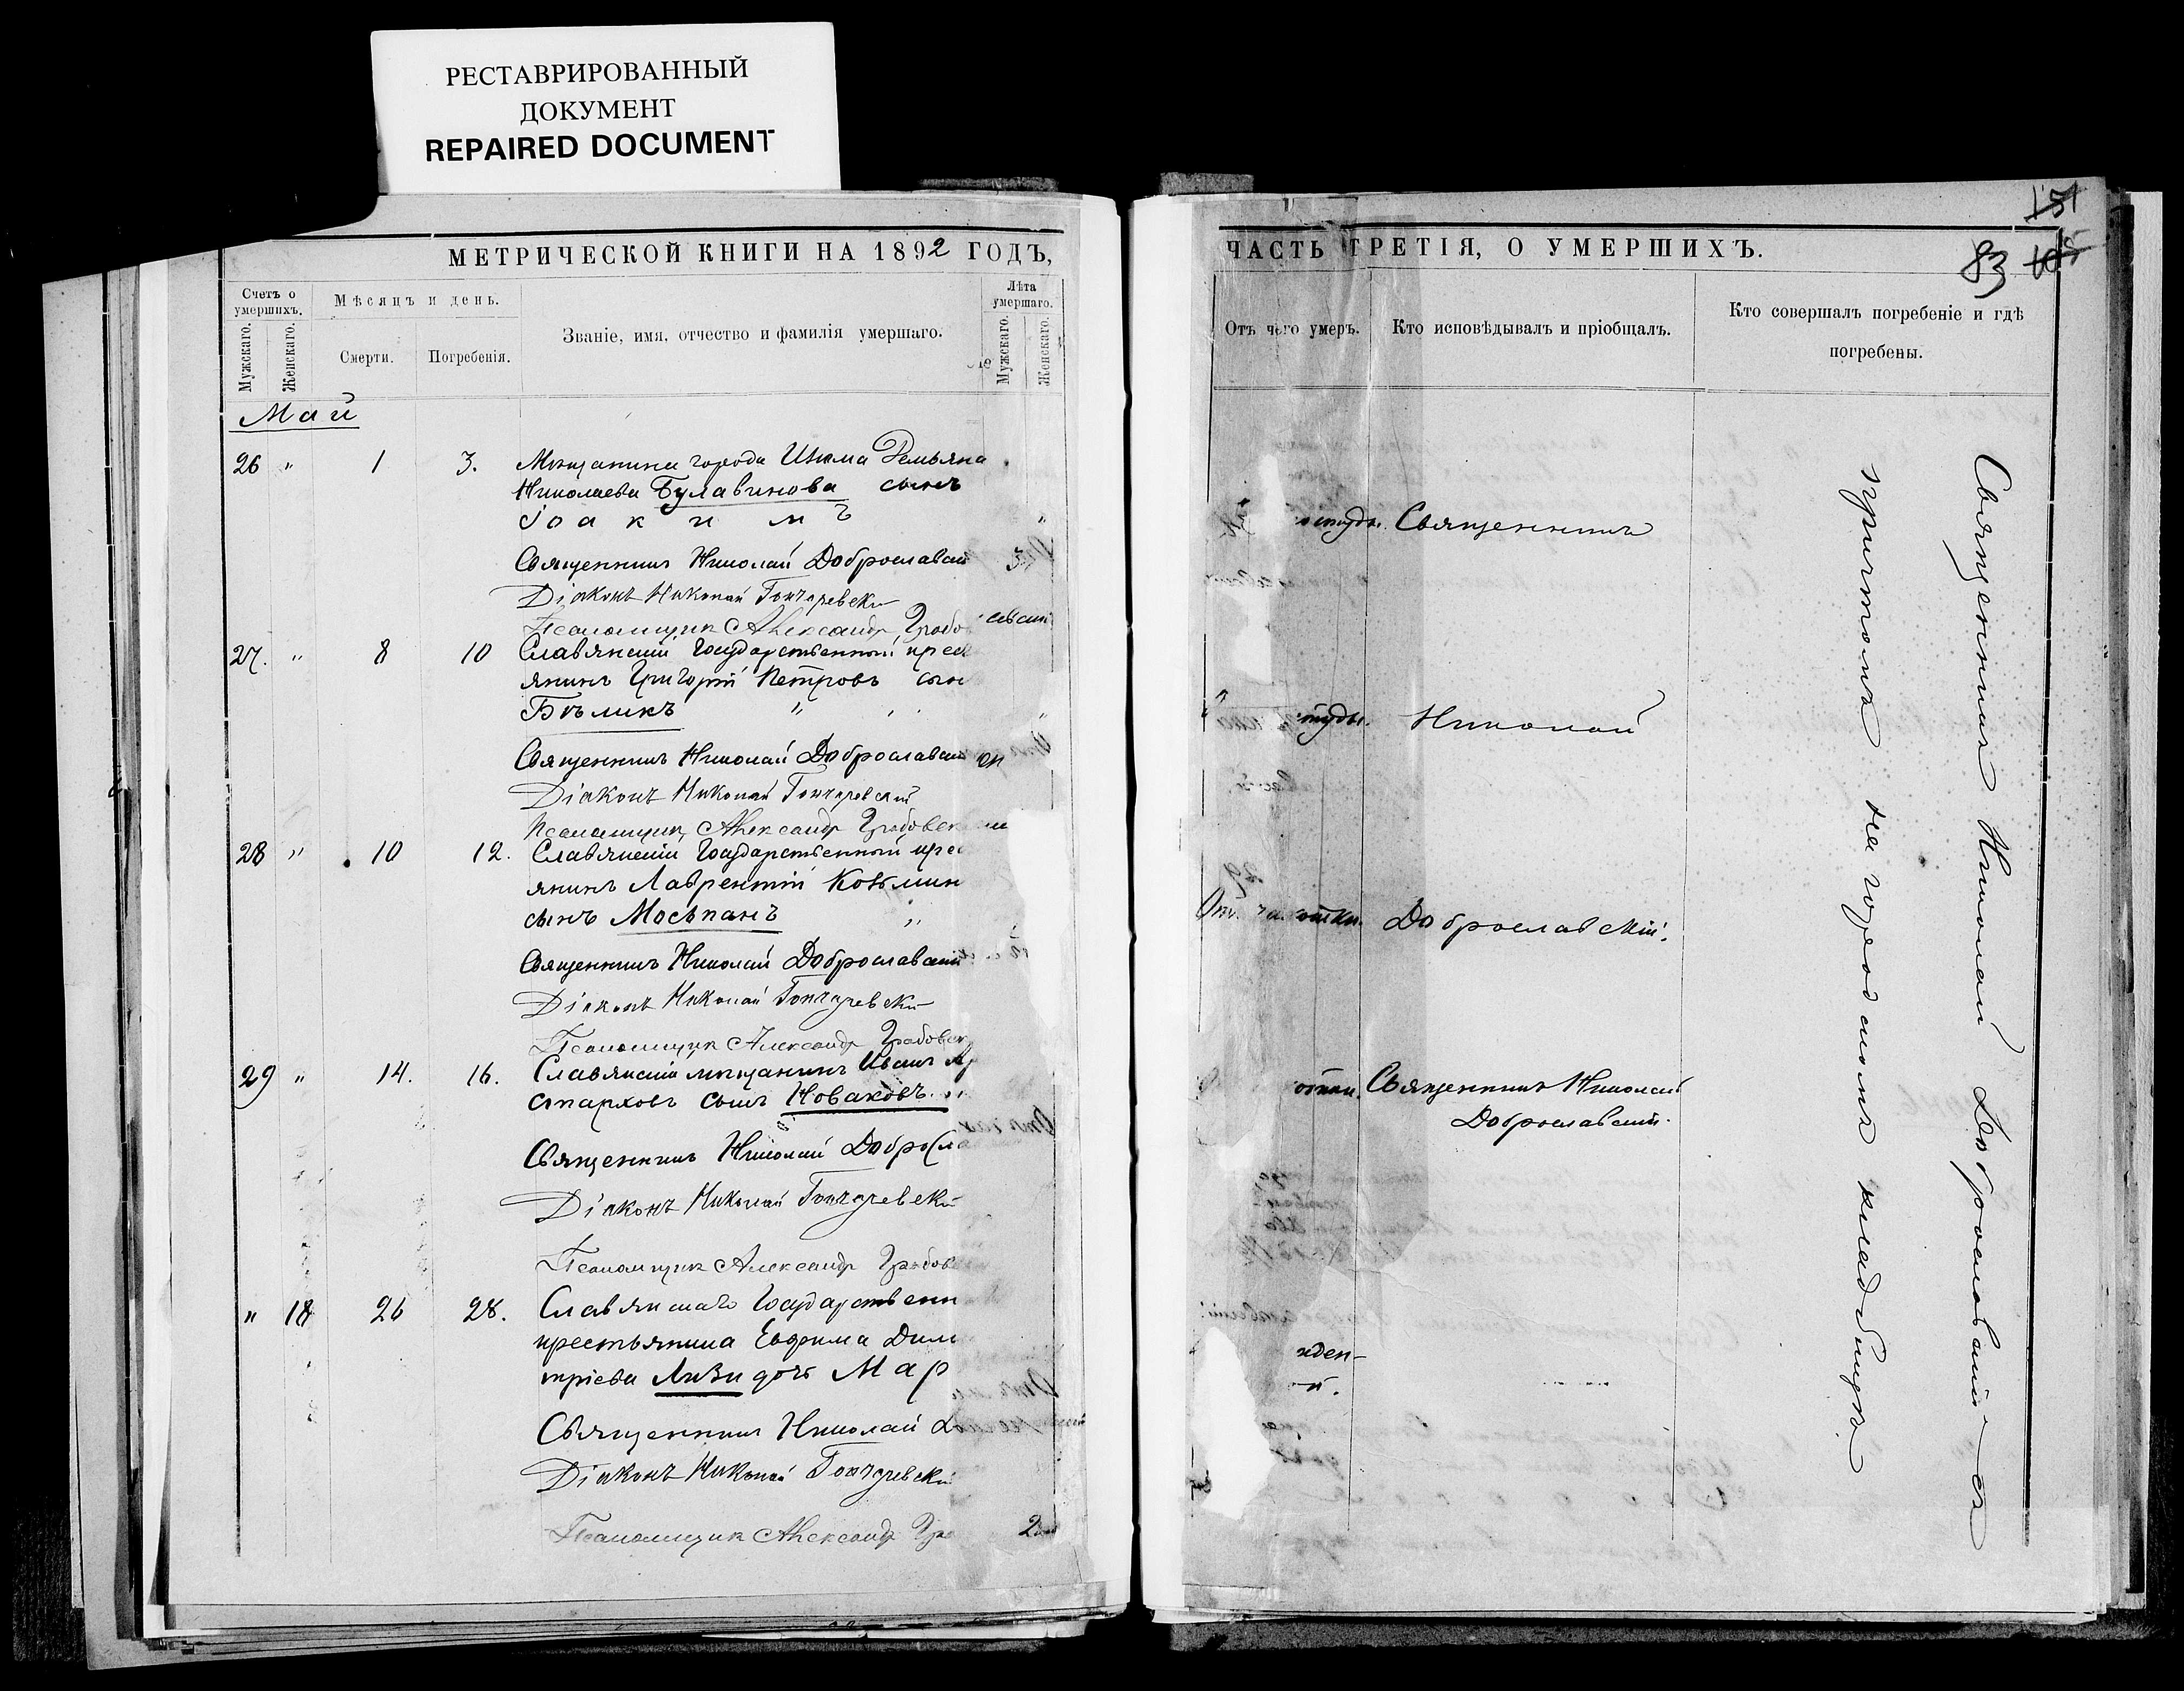 РЕСТАВРИРОВАННЫЙ
ДОКУМЕНТ
REPAIRED DOCUMENT
МЕТРИЧЕСКОЙ КНИГИ НА 1892 ГОДЪ,
Счетъ о умершихъ.
Мужскаго.
Женскаго.
Мѣсяцъ и день.
Смерти.
Погребенія.
Званіе, имя, отчество и фамилія умершаго.
Лѣта умершаго.
Мужскаго.
Женскаго.
Май
26 " 1 3. Мѣщанина города Изюма Демьяна
Николаева Булавинова сынъ
Іоакимъ
Священникъ Николай Доброславскій
Діаконъ Николай Гончаревскій
Псаломщик Александр Грабовскій
27. " 8 10 Славянскій Государственный крест
янинъ Григорій Петровъ сын
Бѣликъ "
Священникъ Николай Доброславскій
Діаконъ Николай Гончаревскій
Псаломщик Александр Грабовск
28 " 10 12. Славянскій Государственный крес
янинъ Лаврентій Козьмин
сынъ Мосьпанъ "
Священникъ Николай Доброславскій
Діаконъ Николай Гончаревскій
Псаломщик Александр Грабовск
29 " 14. 16. Славянскій мѣщанинъ Иванъ Ар
старховъ сынъ Новаковъ.
Священникъ Николай Добросла
Діаконъ Николай Гончаревскій
Псаломщик Александр Грабов
" 18 26 28. Славянскаго Государственн
крестьянина Евфима Дими
тріева Лизи дочь Мар
Священникъ Николай Д
Діаконъ Николай Гончаревскій
Псаломщик Александр Гра
ЧАСТЬ ТРЕТІЯ, О УМЕРШИХЪ.
151
83 105
Отъ чего умеръ.
Кто исповѣдывалъ и пріобщалъ.
Кто совершалъ погребеніе и гдѣ
погребены.
студы. Священникъ
студы. Николай
Доброславскій.
Священникъ Николай
Доброславскій.
Священникъ Николай Доброславскій съ
причтомъ на городскомъ кладбищѣ